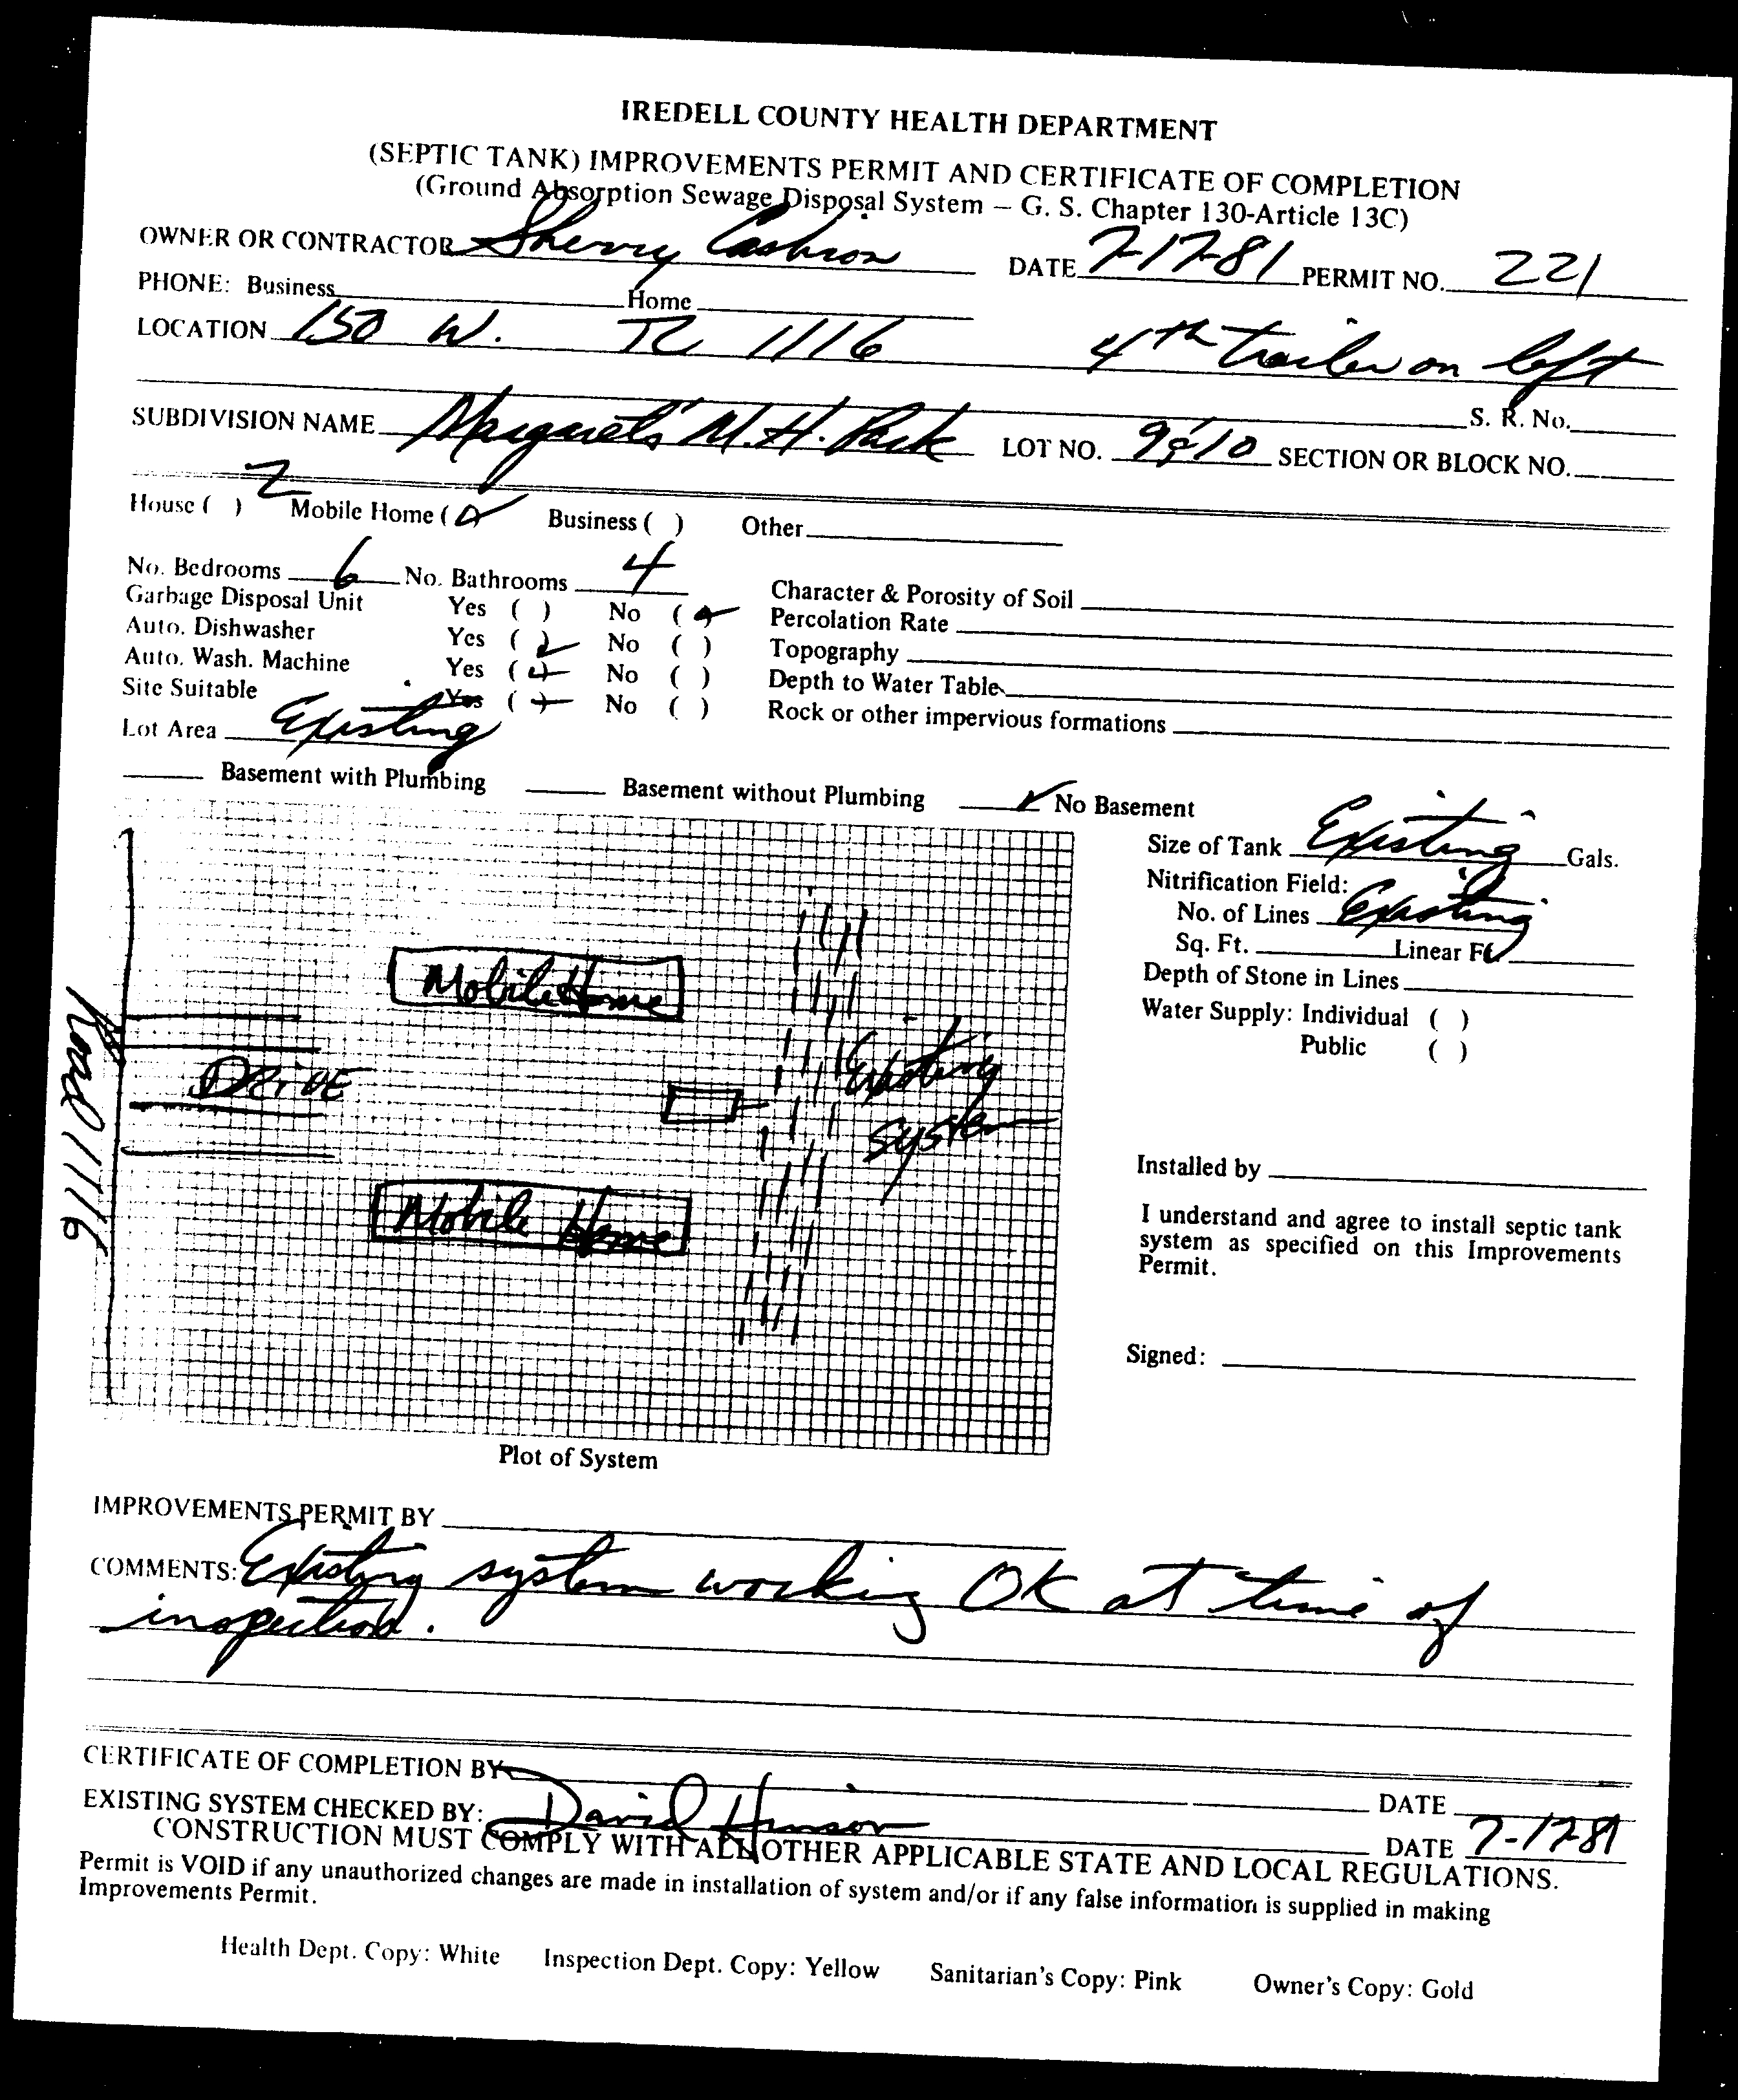 IREDELL COUNTY HEALTH DEPARTMENT
(SEPTIC TANK) IMPROVEMENTS PERMIT AND CERTIFICATE OF COMPLETION
(Ground Absorption Sewage Disposal System – G. S. Chapter 130-Article 13C)
OWNER OR CONTRACTOR Sherry Cashion DATE 7-17-81 PERMIT NO. 221
PHONE: Business Home
LOCATION 150 W. TR 1116 4th trailer on left
S. R. No.
SUBDIVISION NAME Margaret's M.H. Park LOT NO. 9 & 10 SECTION OR BLOCK NO.
House ( ) 2 Mobile Home (✓) Business ( ) Other
No. Bedrooms 6 No. Bathrooms 4 Character & Porosity of Soil
Garbage Disposal Unit Yes ( ) No (✓) Percolation Rate
Auto. Dishwasher Yes (✓) No ( ) Topography
Auto. Wash. Machine Yes (✓) No ( ) Depth to Water Table
Site Suitable Yes ( ) No ( ) Rock or other impervious formations
Lot Area Existing
Basement with Plumbing Basement without Plumbing ✓ No Basement
Size of Tank Existing Gals.
Nitrification Field:
No. of Lines Existing
Sq. Ft. Linear Ft.
Depth of Stone in Lines
Water Supply: Individual ( )
Public ( )
Mobile Home
Road 1116
DRIVE
Existing
System
Mobile Home
Installed by
I understand and agree to install septic tank
system as specified on this Improvements
Permit.
Signed:
Plot of System
IMPROVEMENTS PERMIT BY
COMMENTS: Existing system working OK at time of
inspection.
CERTIFICATE OF COMPLETION BY DATE
EXISTING SYSTEM CHECKED BY: David Hinson DATE 7-17-81
CONSTRUCTION MUST COMPLY WITH ALL OTHER APPLICABLE STATE AND LOCAL REGULATIONS.
Permit is VOID if any unauthorized changes are made in installation of system and/or if any false information is supplied in making
Improvements Permit.
Health Dept. Copy: White Inspection Dept. Copy: Yellow Sanitarian's Copy: Pink Owner's Copy: Gold